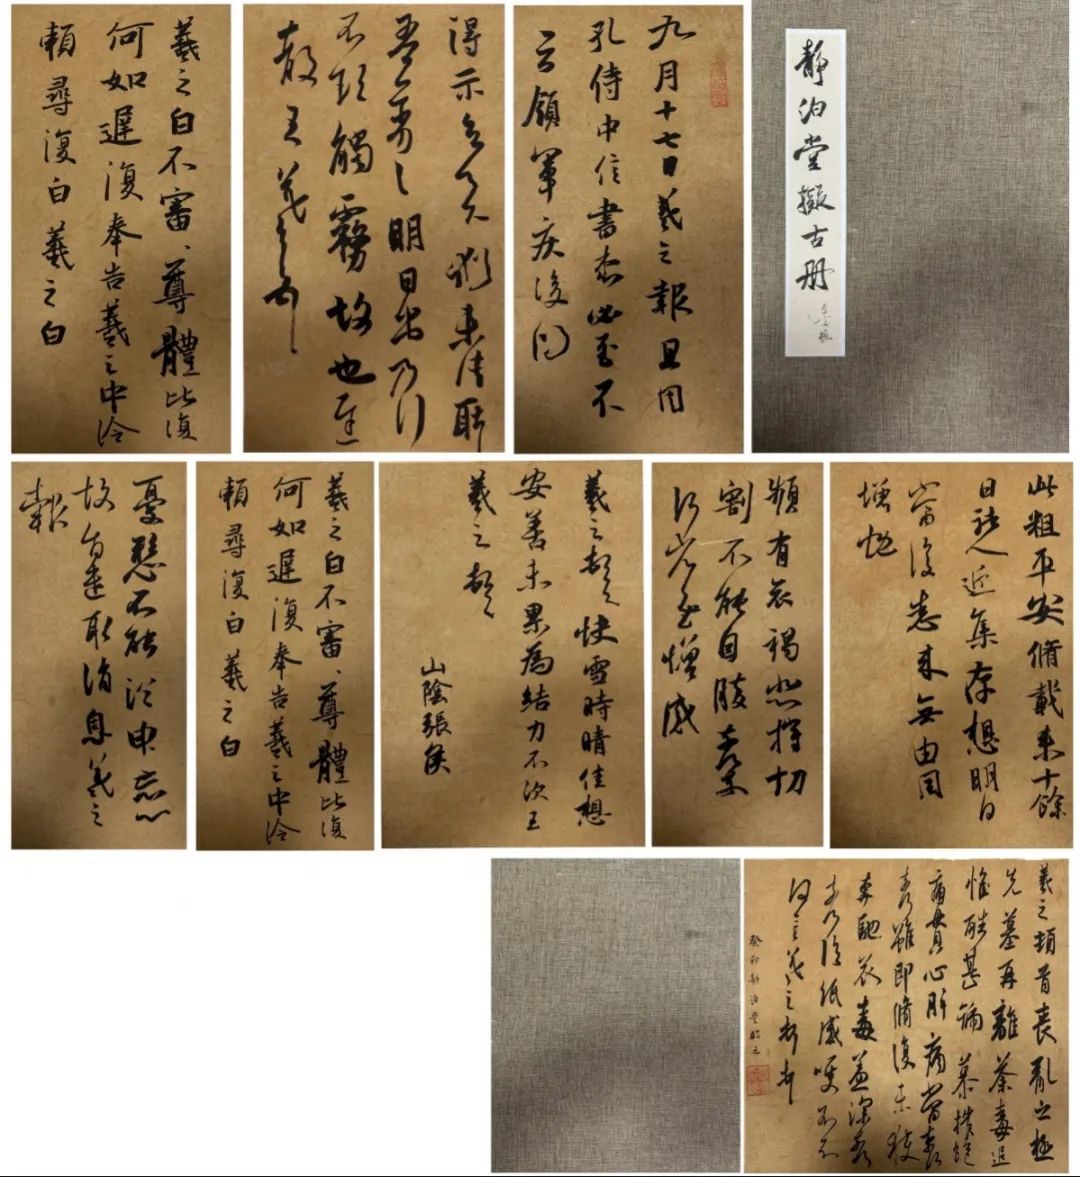 静泊堂擬古册
九月十七日羲之報且因
孔侍中信書想必至不
云領軍疾後問
得示知足下猶未佳耿
吾亦劣之明日出乃行
不欲觸霧故也遲
散王羲之頓首
羲之白不審尊體比復
何如遲復奉告羲之中冷
賴尋復白羲之白
此粗平安脩載来十餘
日諸人近集存想明日
當復悉来無由同
增慨
頻有哀禍悲摧切
割不能自勝奈何
奈何省慰增感
羲之頓首快雪時晴佳想
安善未果為結力不次王
羲之頓首
山陰張侯
羲之白不審尊體比復
何如遲復奉告羲之中冷
賴尋復白羲之白
憂懸不能須臾忘心
故旨遣取消息羲之
報
羲之頓首喪亂之極
先墓再離荼毒追
惟酷甚號慕摧絶
痛貫心肝痛當奈何
奈何雖即脩復未獲
奔馳哀毒益深奈何
奈何臨紙感哽不知
何言羲之頓首頓首
癸卯静泊堂臨之